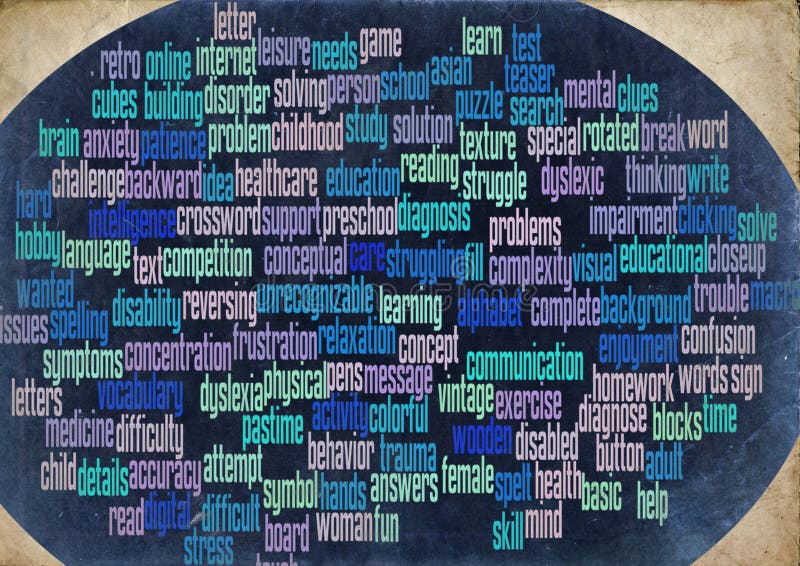 letter
retro online internet leisure needs game learn test
cubes building disorder solving person school asian puzzle teaser search mental clues
brain anxiety patience problem childhood study solution texture special rotated break word
challenge backward idea healthcare education reading struggle dyslexic thinking write
hard intelligence crossword support preschool diagnosis problems impairment clicking solve
hobby language text competition conceptual care struggling fill complexity visual educational closeup
wanted disability reversing unrecognizable learning alphabet complete background trouble macro
issues spelling symptoms concentration frustration relaxation concept communication enjoyment confusion
letters vocabulary dyslexia physical pens message vintage exercise homework words sign
medicine difficulty pastime activity colorful wooden disabled diagnose blocks time
child details accuracy attempt behavior trauma female spelt health button adult
read digital difficult symbol hands answers basic help
stress board woman fun skill mind
touch